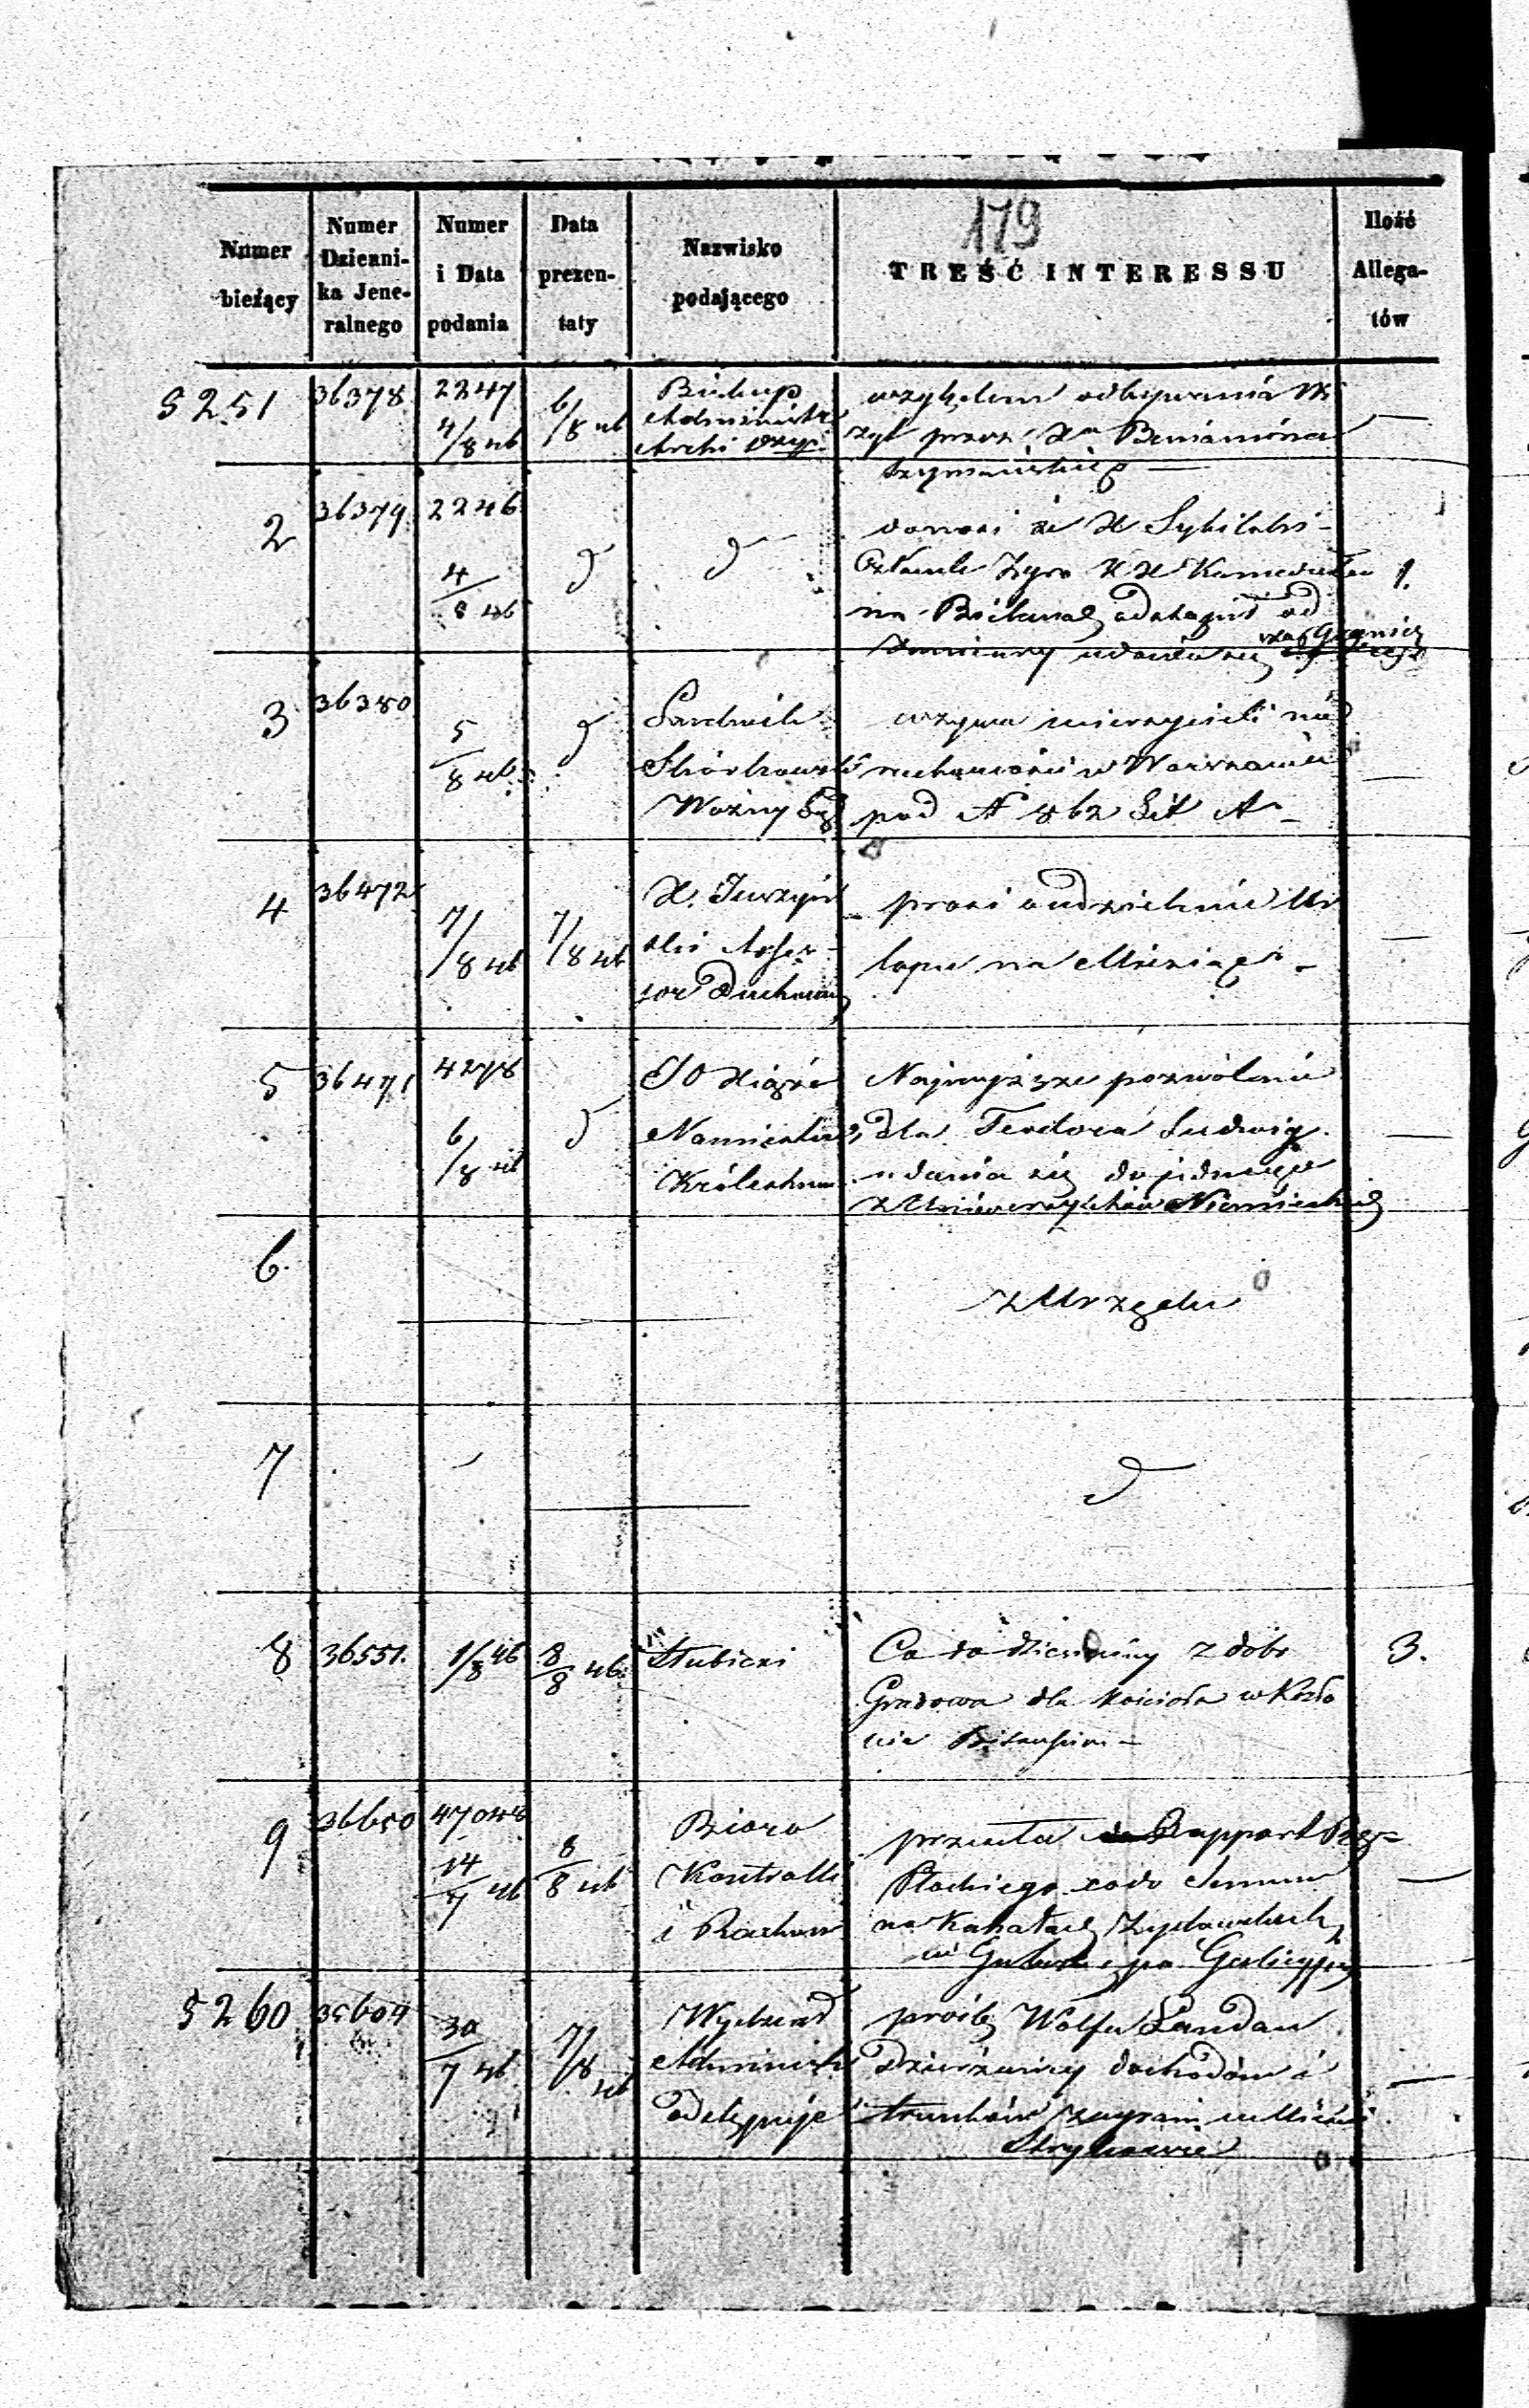 179
Numer bieżący
Numer Dzienni-ka Jene-ralnego
Numer i Data podania
Data prezen-taty
Nazwisko podającego
TREŚĆ INTERESSU
Ilość Allega-tów
5251 36378 2247 4/8 46 6/8 46
Biskup
Administr
Archi
względem odbywania Wi
zyt przez Xa Beniamina
Szymańskiego —
2 36379 2246 4/8 46 d d
donosi że X
Członek Zgro XX Kamedułów
na Bielanach od
zamiany udania się za Granicę
1.
3 36380 5/8 46 d
Ludwik
Woźny Są
wzywa wierzycieli nie
ruchomości w Warszawie
pod N 862 Lit A —
4 36472 7/8 46 7/8 46
X. Juszyń
ski Asses-
sor Duchowny
prosi o udzielenie Ur
lopu na Miesiąc —
5 36471 4278 6/8 46 d
JO Xiąże
Namiestnik
Królestwa
Najwyższe pozwolenie
dla Teodora Ludwig
udania się do jednego
z Uniwersytetów Niemieckich
6.
z Urzędu
7 d
8 36551. 1/8 46 8/8 46
Słubicki
Co do dziesięciny z dóbr
Gradowa dla kościoła w Kozło
wie Biskupim —
3.
9 36650 47048 14/7 46 8/8 46
Bióro
Kontrolli
i Rachun
przesyła Rapport Rzą=
Płockiego co do Summ
na Kahałach Żydowskich
w Guber: po Galicyjs
5260 35604 30/7 46 7/8 46
Wydział
Administ
odstępuje
prośbę Wolfa Landau
Dzierżawcy dochodów z
trunków w Mieście
Strykowie